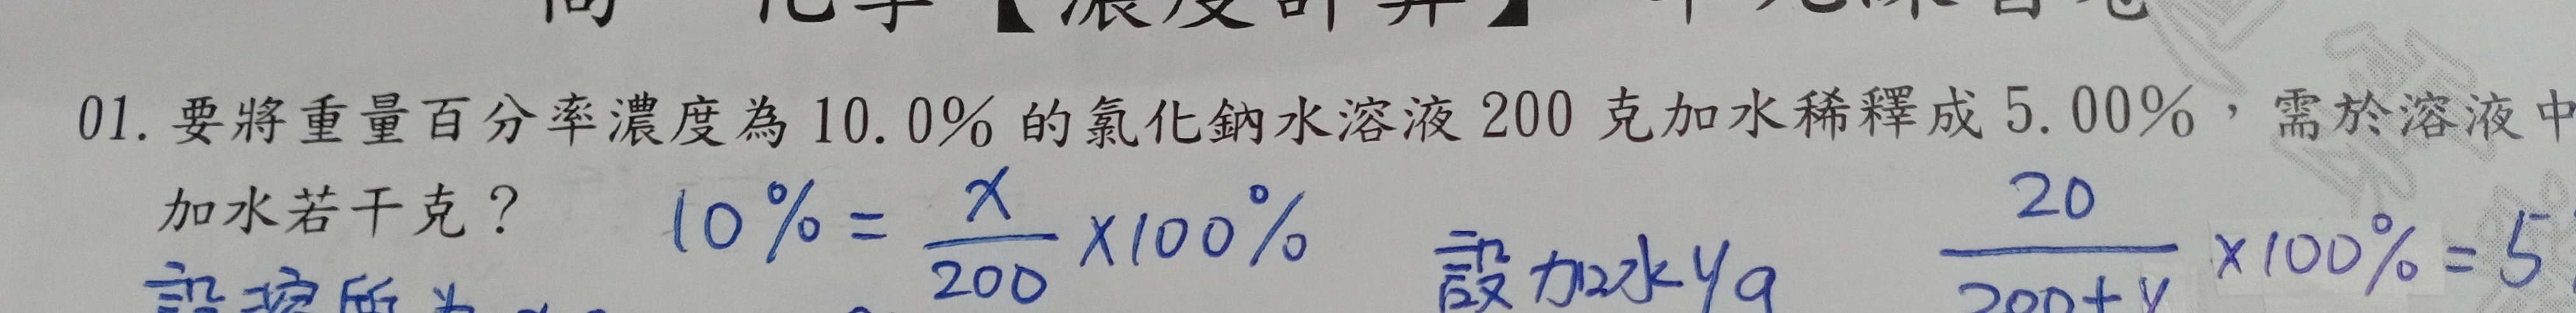 化學【濃度計算】
01. 要將重量百分率濃度為 10.0% 的氯化鈉水溶液 200 克加水稀釋成 5.00%，需於溶液中
加水若干克？
10% = x/200 ×100%
設加水 y g
20/200+y ×100% = 5
設溶質為